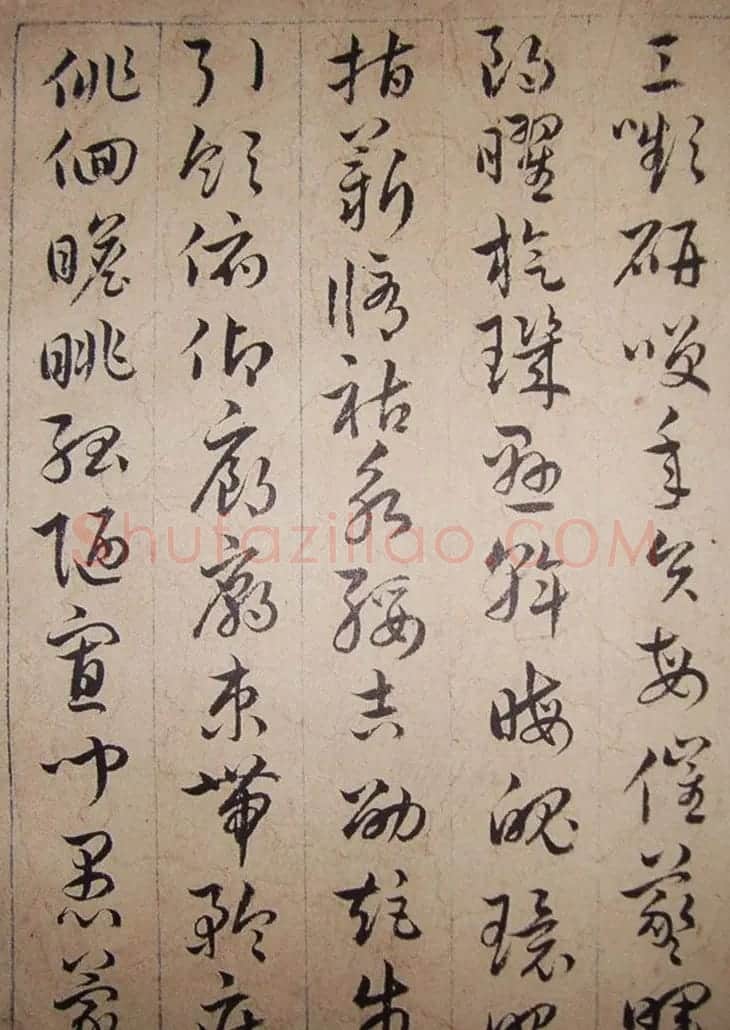 工嚬研咲年矢每催羲暉
朗曜旋璣懸斡晦魄環照
指薪脩祜永綏吉劭矩步
引領俯仰廊廟束帶矜莊
徘徊瞻眺孤陋寡聞愚蒙
Shufaziliao.COM